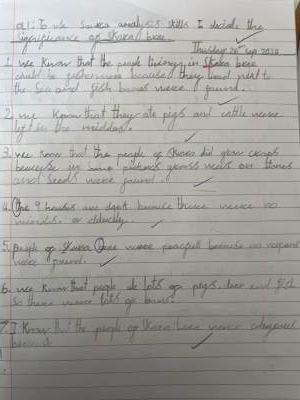 OLI: To use Source analysis skills I decide the
significance of Skara brae.
Thursday 26th Sep 2024
1. we know that the people living in Skara brae
could be fishermen because they lived next to
the Sea and fish bones were found.
2. we know that they ate pigs and cattle were
left in the midden.
3. we know that the people of Skara did grow crops
because in some pictures grass was on
and seeds were found.
4. the 9 houses are dark because there were no
windows or
5. People of Skara brae were peacefull because no weapons
were found.
6. we know that people ate lots of pigs, deer and fish
so there were lots of bones.
7. I know that the people of Skara brae were